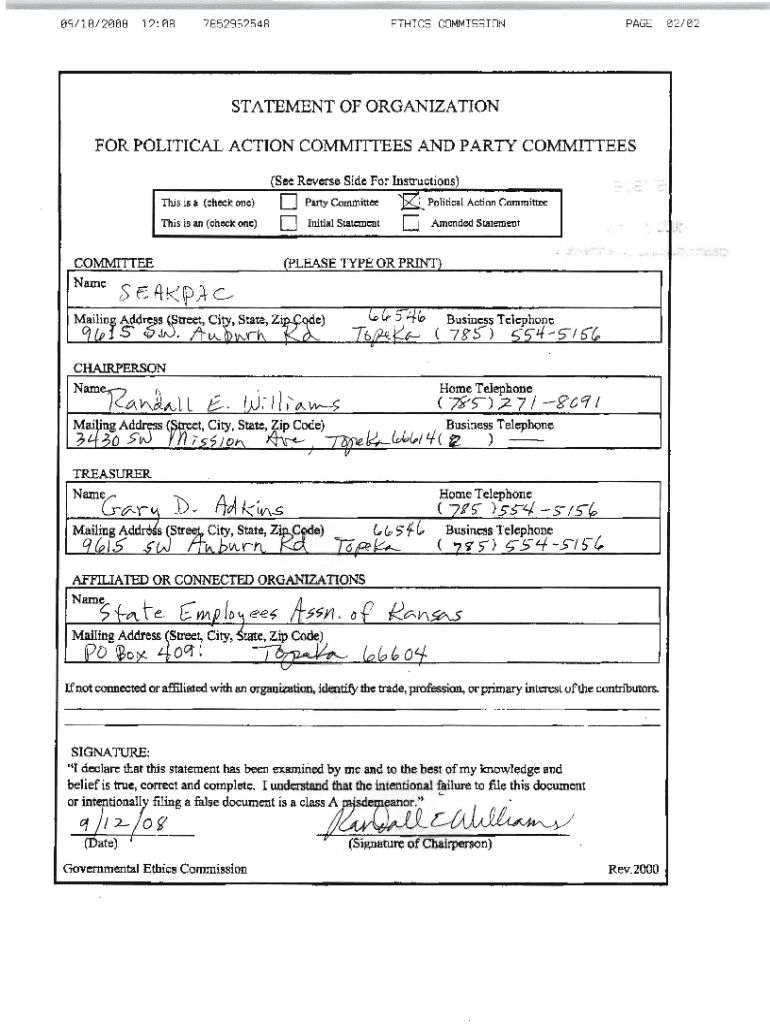 09/18/2008 12:08 7852962548 ETHICS COMMISSION PAGE 02/02
STATEMENT OF ORGANIZATION
FOR POLITICAL ACTION COMMITTEES AND PARTY COMMITTEES
(See Reverse Side For Instructions)
This is a (check one) Party Committee Political Action Committee
This is an (check one) Initial Statement Amended Statement
COMMITTEE (PLEASE TYPE OR PRINT)
Name
SEAKPAC
Mailing Address (Street, City, State, Zip Code) 66546 Business Telephone
9615 SW. Auburn Rd Topeka (785) 554-5156
CHAIRPERSON
Name Home Telephone
Randall E. Williams (785) 271-8091
Mailing Address (Street, City, State, Zip Code) Business Telephone
3430 SW Mission Ave, Topeka 66614 ( )
TREASURER
Name Home Telephone
Gary D. Adkins (785) 554-5156
Mailing Address (Street, City, State, Zip Code) 66546 Business Telephone
9615 SW Auburn Rd Topeka (785) 554-5156
AFFILIATED OR CONNECTED ORGANIZATIONS
Name
State Employees Assn. of Kansas
Mailing Address (Street, City, State, Zip Code)
PO Box Topeka 66604
If not connected or affiliated with an organization, identify the trade, profession, or primary interest of the contributors.
SIGNATURE:
"I declare that this statement has been examined by me and to the best of my knowledge and
belief is true, correct and complete. I understand that the intentional failure to file this document
or intentionally filing a false document is a class A misdemeanor."
9/12/08 Randall E Williams
(Date) (Signature of Chairperson)
Governmental Ethics Commission Rev.2000